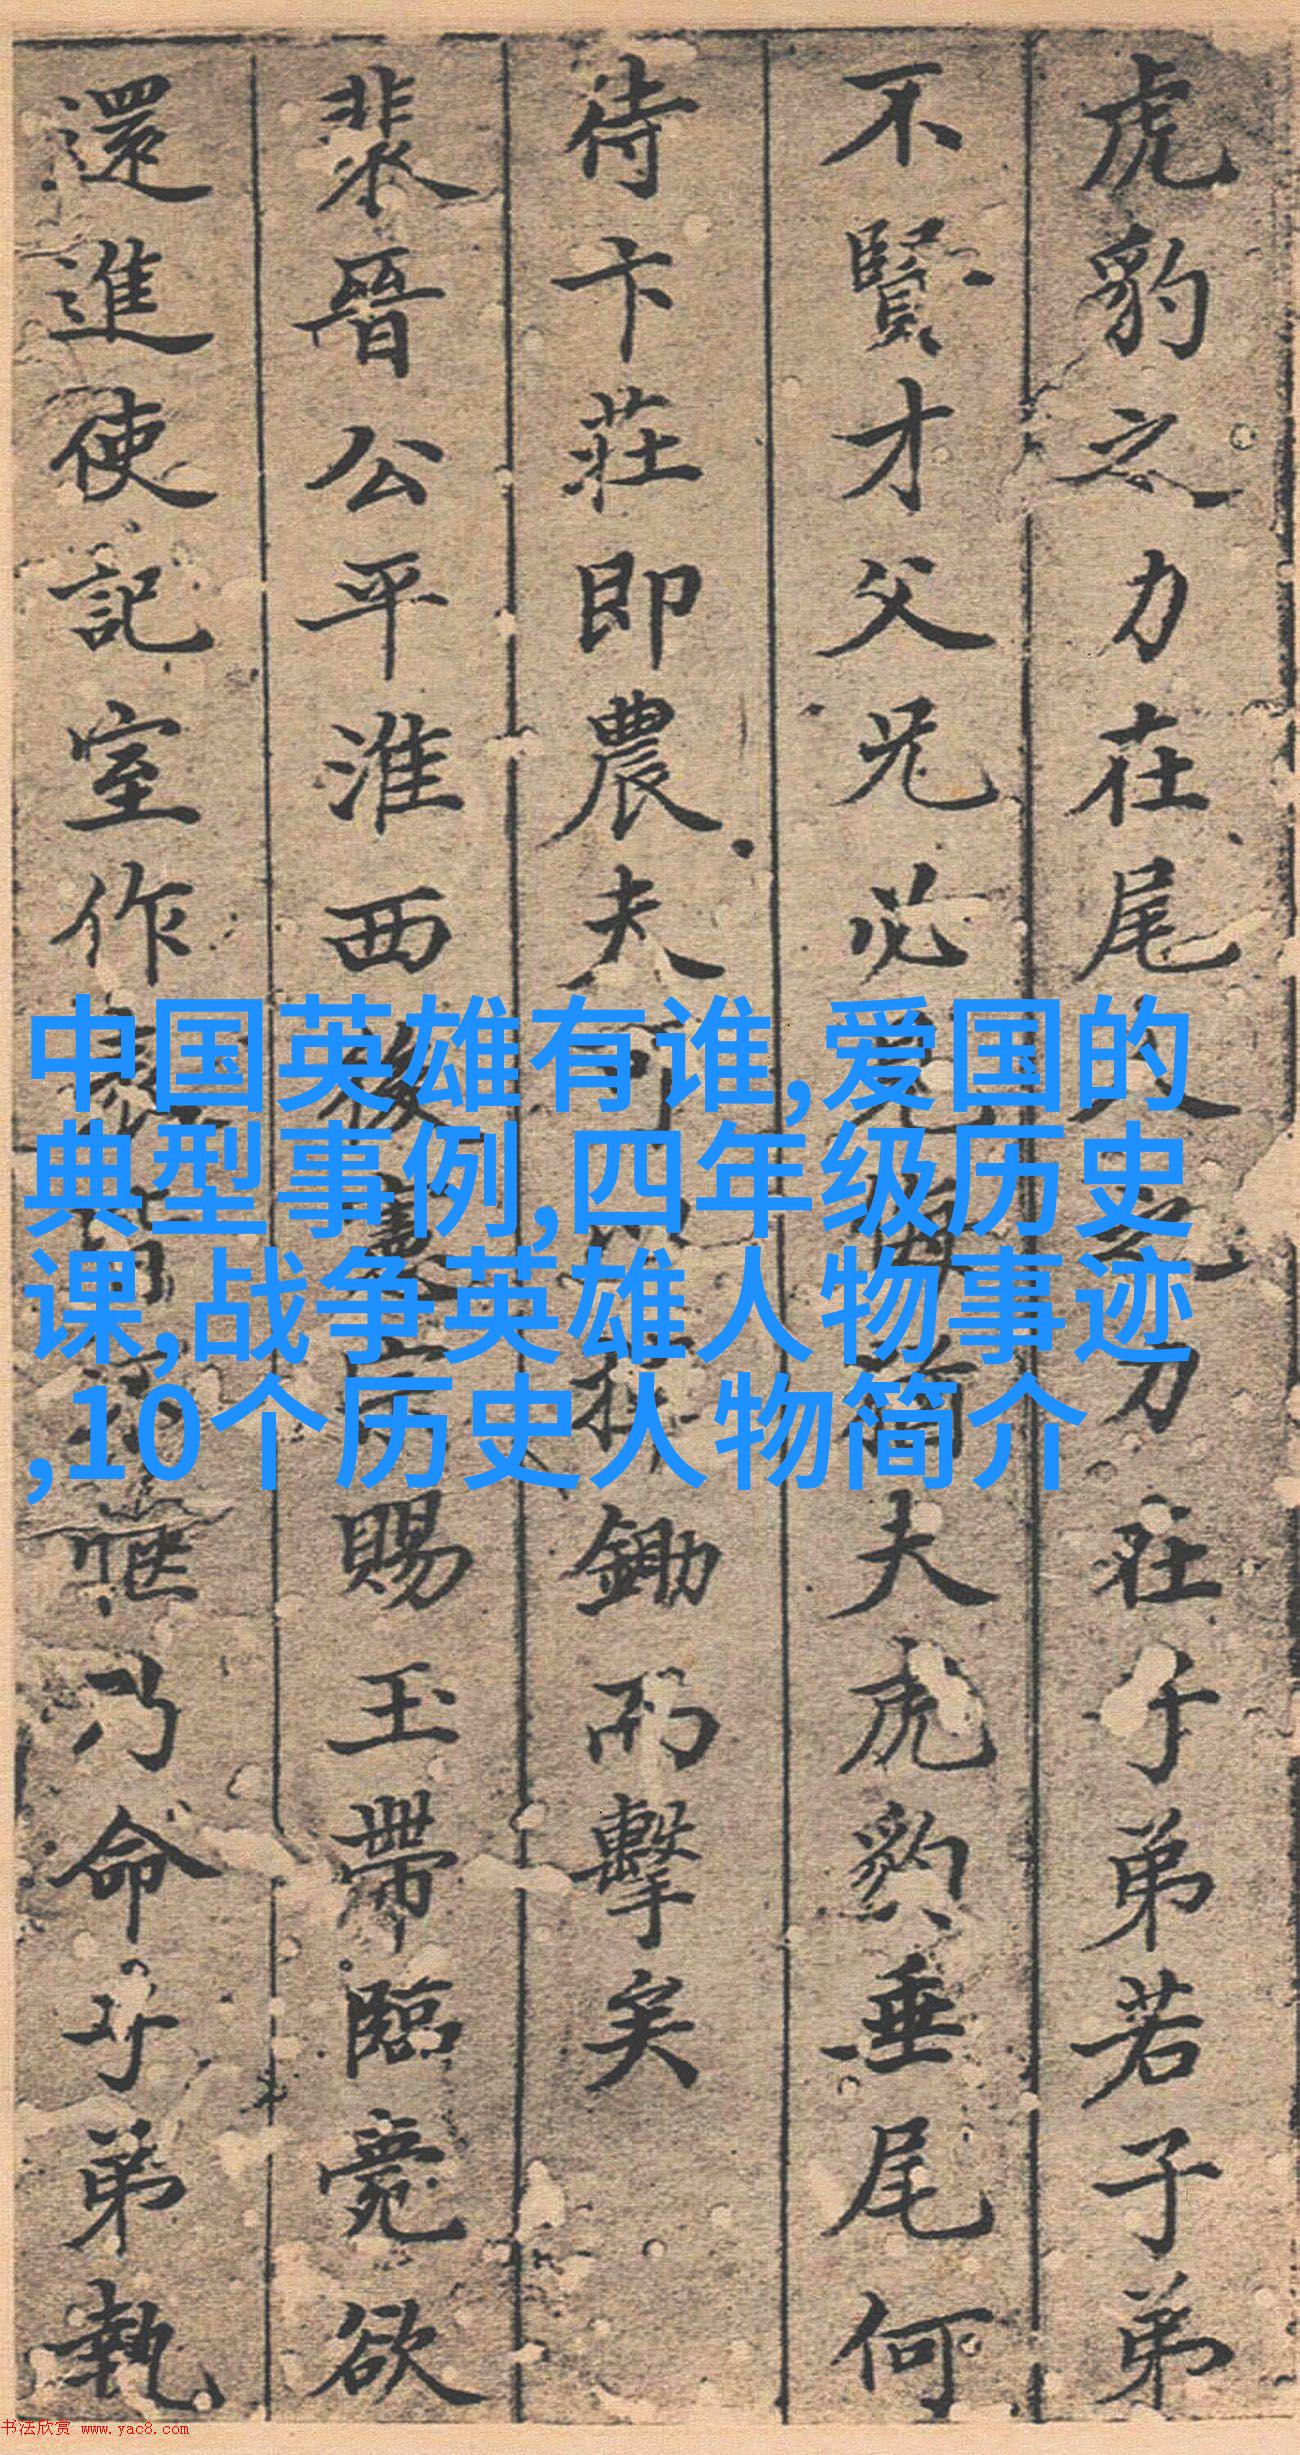 虎豹之力在尾人之力在子弟若子弟
不賢才父兄必
夫虎豹垂尾何
待卞莊即農夫
鋤而擊矣
裴晉公平淮西
賜玉帶臨薨欲
還進使記室作
乃命子弟執
中国英雄有谁,爱国的
典型事例,四年级历史
课,战争英雄人物事迹
,10个历史人物简介
书法欣赏 www.yac8.com